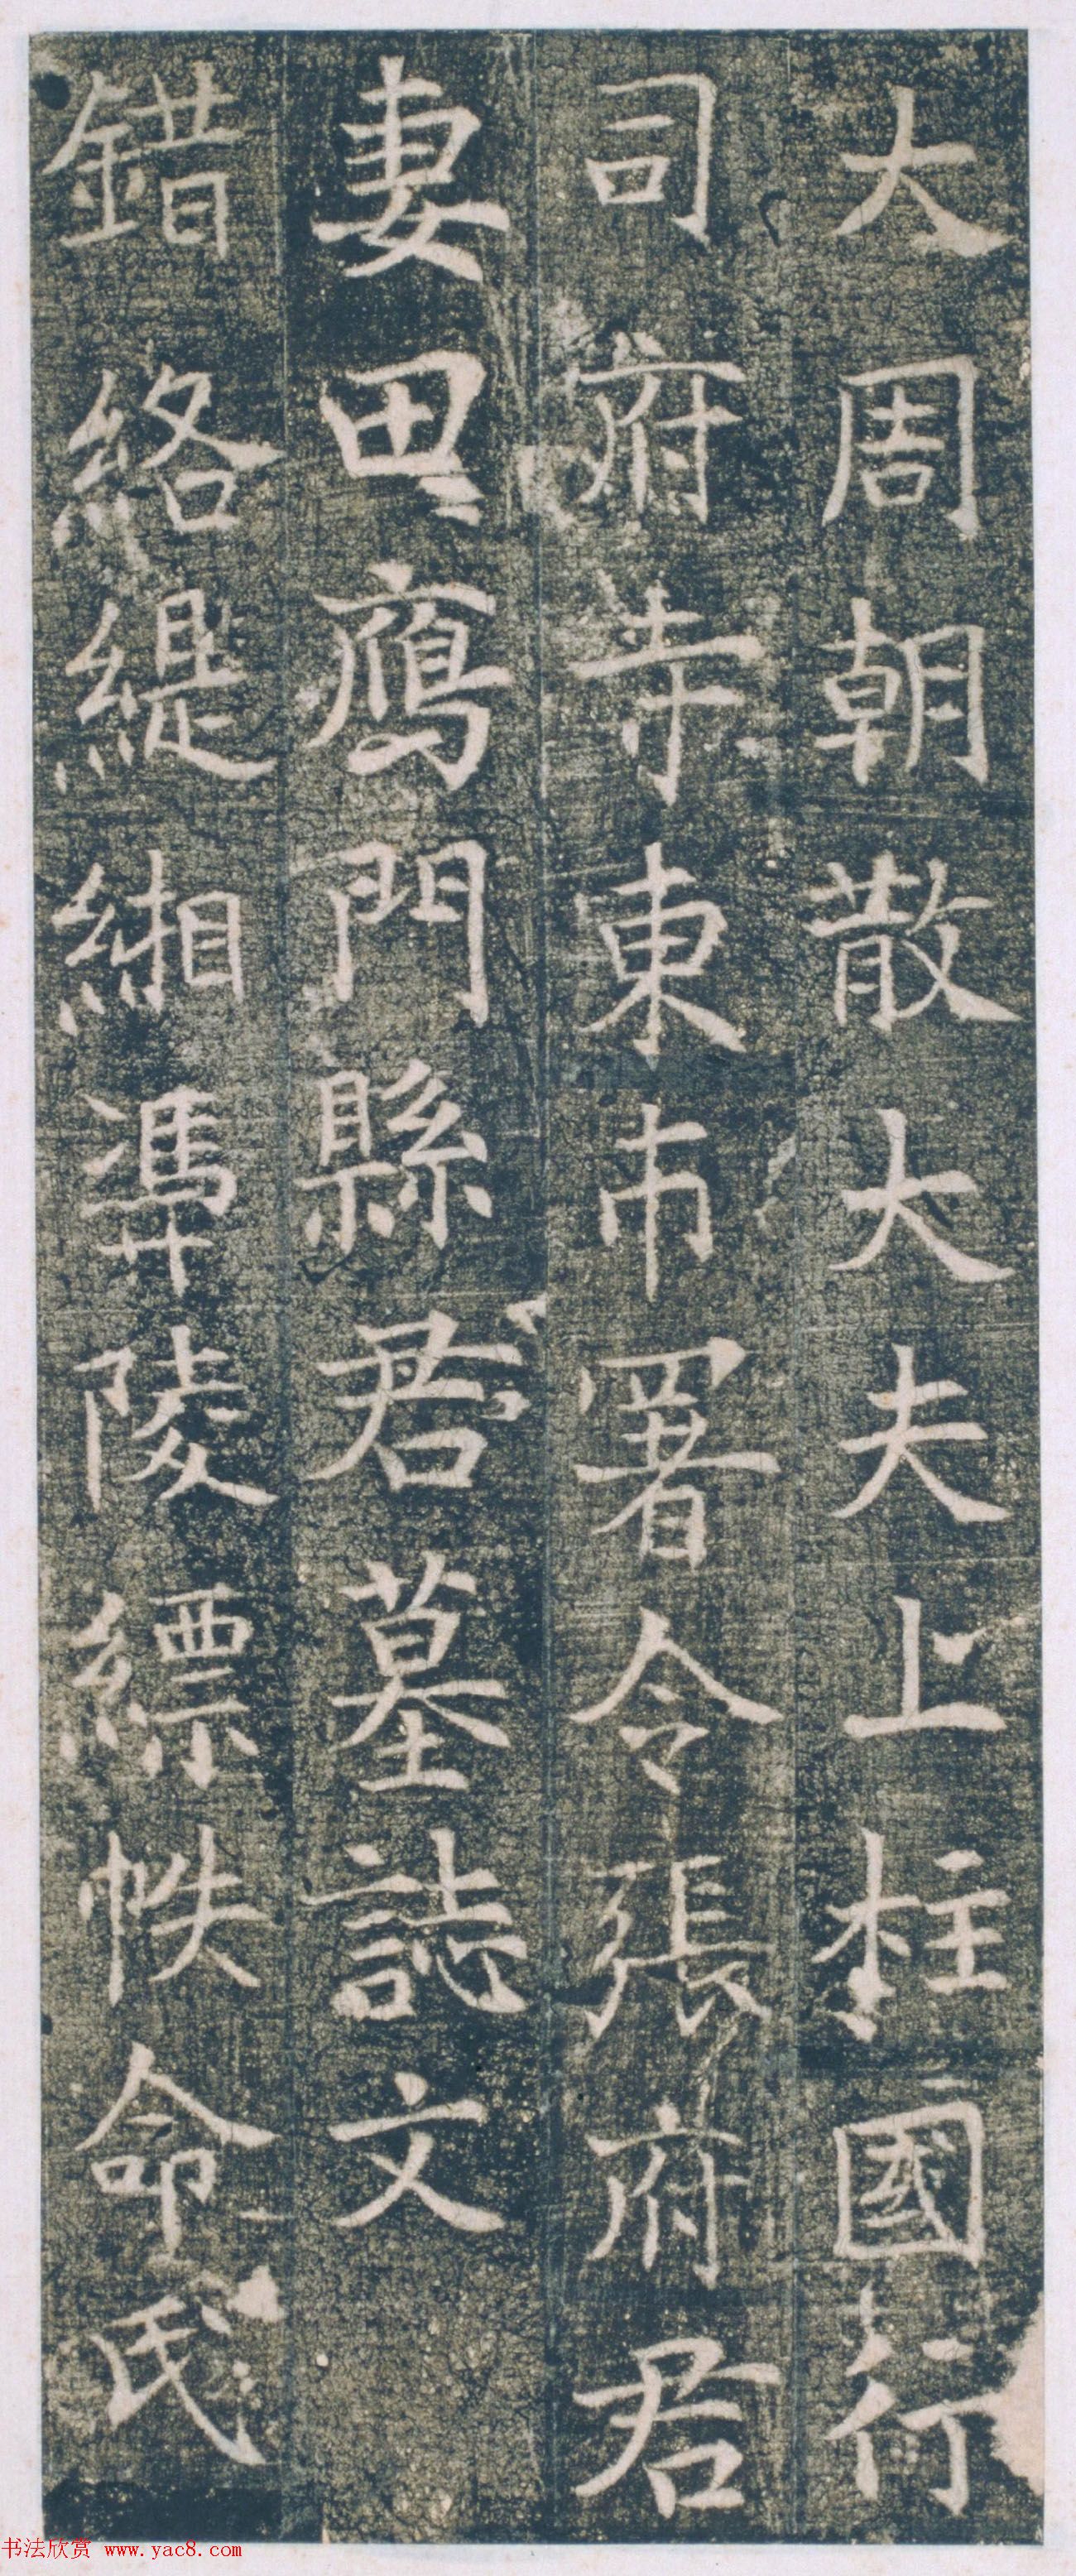 大周朝散大夫上柱國行
司府寺東市署令張府君
妻田鴈門縣君墓誌文
錯絡緹緗馮陵縹帙命氏
书法欣赏 www.yac8.com